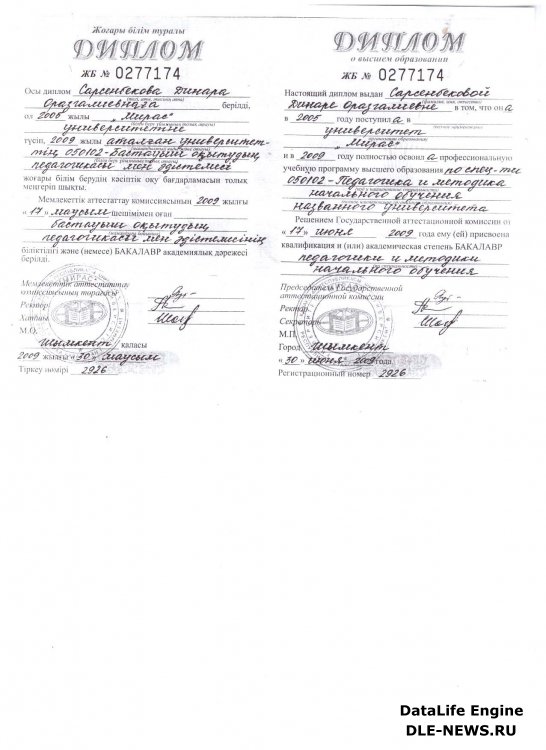 Жоғары білім туралы
ДИПЛОМ
ЖБ № 0277174
Осы диплом Сарсенбекова Динара
Оразгалиевнаға берілді,
ол 2005 жылы „Мирас“
университетіне
түсіп, 2009 жылы аталған университет-
тің 050102-Бастауыш оқытудың
педагогикасы мен әдістемесі
жоғары білім берудің кәсіптік оқу бағдарламасын толық
меңгеріп шықты.
Мемлекеттік аттестаттау комиссиясының 2009 жылғы
« 17 » маусым шешімімен оған
бастауыш оқытудың
педагогикасы мен әдістемесінің
біліктілігі және (немесе) БАКАЛАВР академиялық дәрежесі
берілді.
Мемлекеттік аттестаттау
комиссиясының төрағасы
Ректор
Хатшы
М.О.
Шымкент қаласы
2009 жылғы « 30 » маусым
Тіркеу нөмірі 2926
ДИПЛОМ
о высшем образовании
ЖБ № 0277174
Настоящий диплом выдан Сарсенбековой
Динаре Оразгалиевне в том, что он а
в 2005 году поступил а в
университет
„Мирас“
и в 2009 году полностью освоил а профессиональную
учебную программу высшего образования по спец-ти
050102-Педагогика и методика
начального обучения
названного университета
Решением Государственной аттестационной комиссии от
« 17 » июня 2009 года ему (ей) присвоена
квалификация и (или) академическая степень БАКАЛАВР
педагогики и методики
начального обучения
Председатель Государственной
аттестационной комиссии
Ректор
Секретарь
М.П.
Город Шымкент
« 30 » июня 2009 года
Регистрационный номер 2926
DataLife Engine
DLE-NEWS.RU